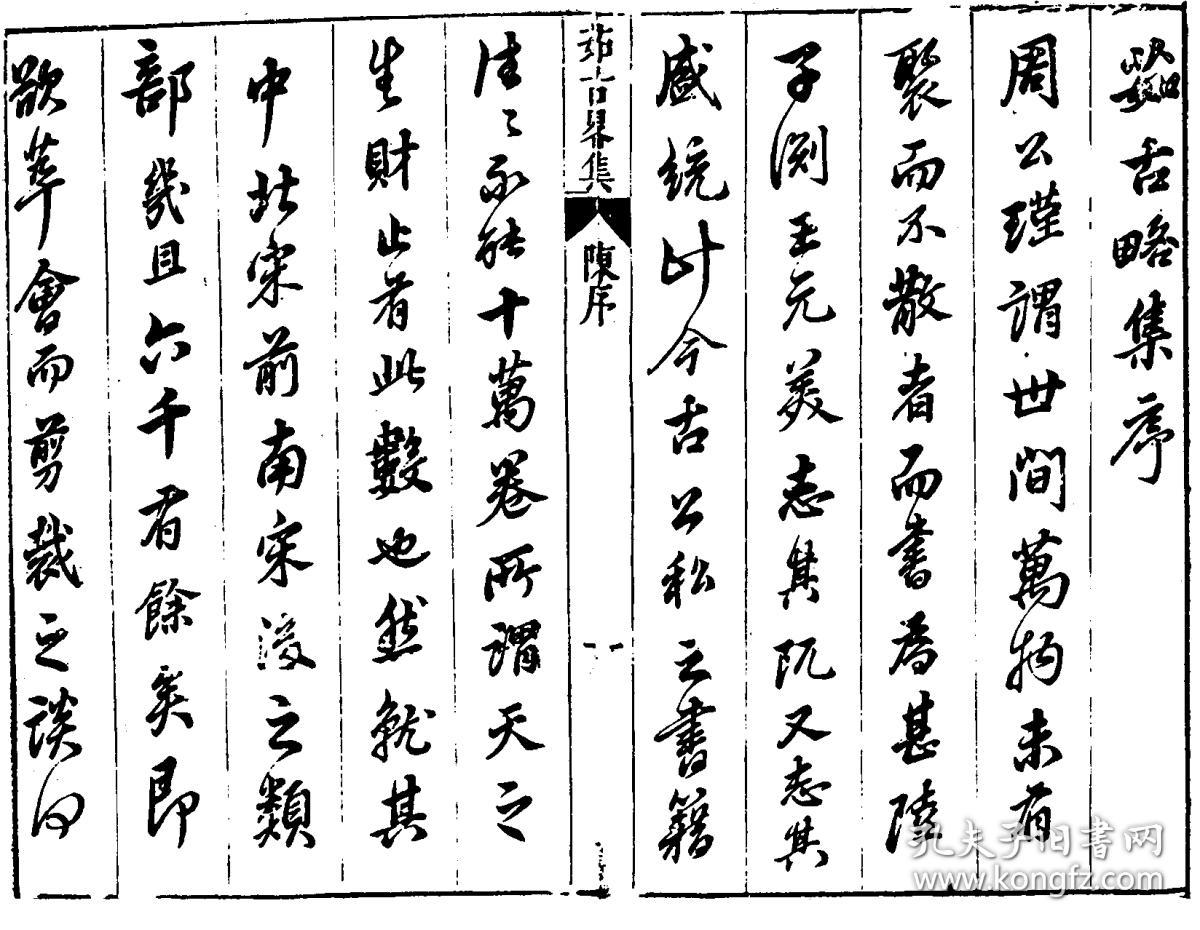 茹古略集序
周公瑾謂世間萬物未有
聚而不散者而書為甚陸
子渊王元美志其阨又志其
盛統計今古公私之書籍
茹古畧集
陳序
一
往〻不能十萬卷所謂天之
生財止有此數也然就其
中北宋前南宋後之類
部幾且六千有餘矣即
欲萃會而剪裁之談何
孔夫子旧书网
www.kongfz.com